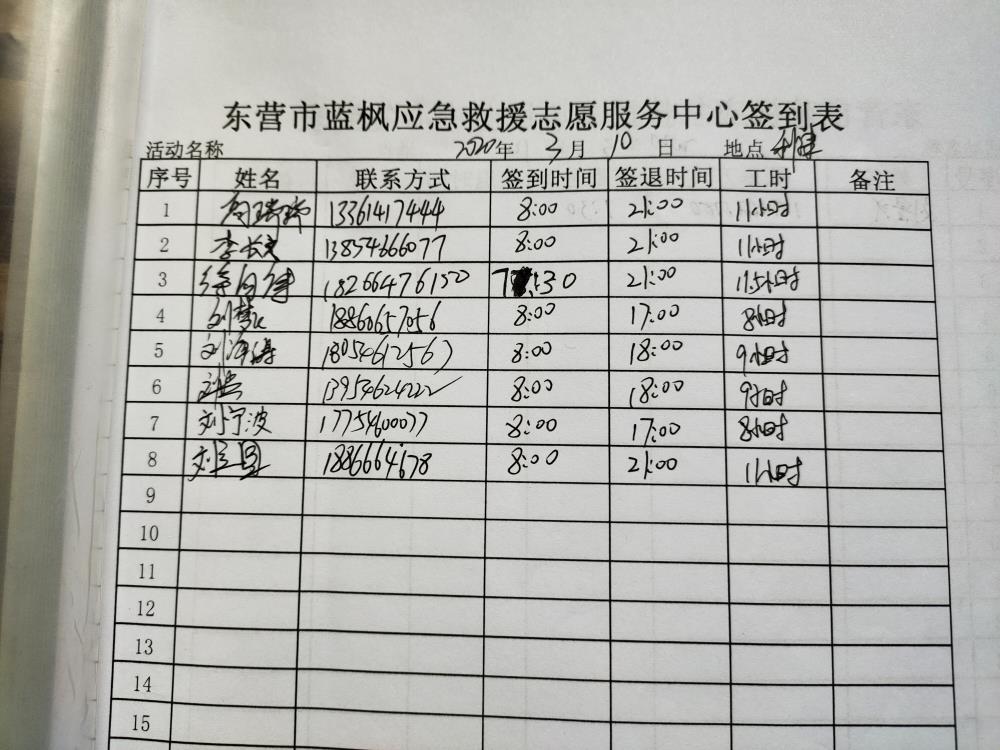 东营市蓝枫应急救援志愿服务中心签到表
活动名称 2020年 3月 10日 地点 利津
序号 姓名 联系方式 签到时间 签退时间 工时 备注
1 13361417444 8:00 21:00 11小时
2 李长文 13854666077 8:00 21:00 11小时
3 18266476150 7:30 21:00 11.5小时
4 刘慧 18860657056 8:00 17:00 8小时
5 刘海涛 18054612567 8:00 18:00 9小时
6 13954624222 8:00 18:00 9小时
7 刘宁波 17754600077 8:00 17:00 8小时
8 18866641678 8:00 21:00 11小时
9
10
11
12
13
14
15